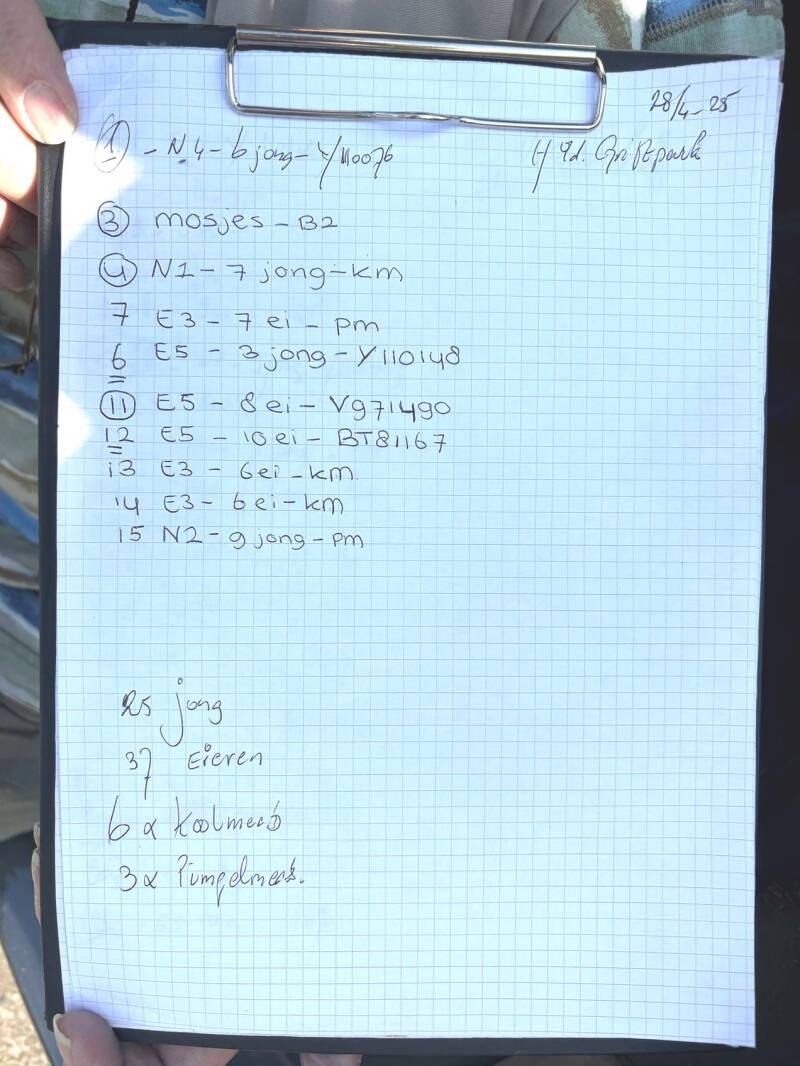 28/4-25
① - N.4 - 6 jong - Y110076
Griftpark
③ mosjes - B2
④ N1 - 7 jong - km
7 E3 - 7 ei - pm
6 E5 - 3 jong - Y110148
⑪ E5 - 8 ei - V971490
12 E5 - 10 ei - BT81167
13 E3 - 6 ei - km
14 E3 - 6 ei - km
15 N2 - 9 jong - pm
25 jong
37 Eieren
6 x Koolmees
3 x Pimpelmees.